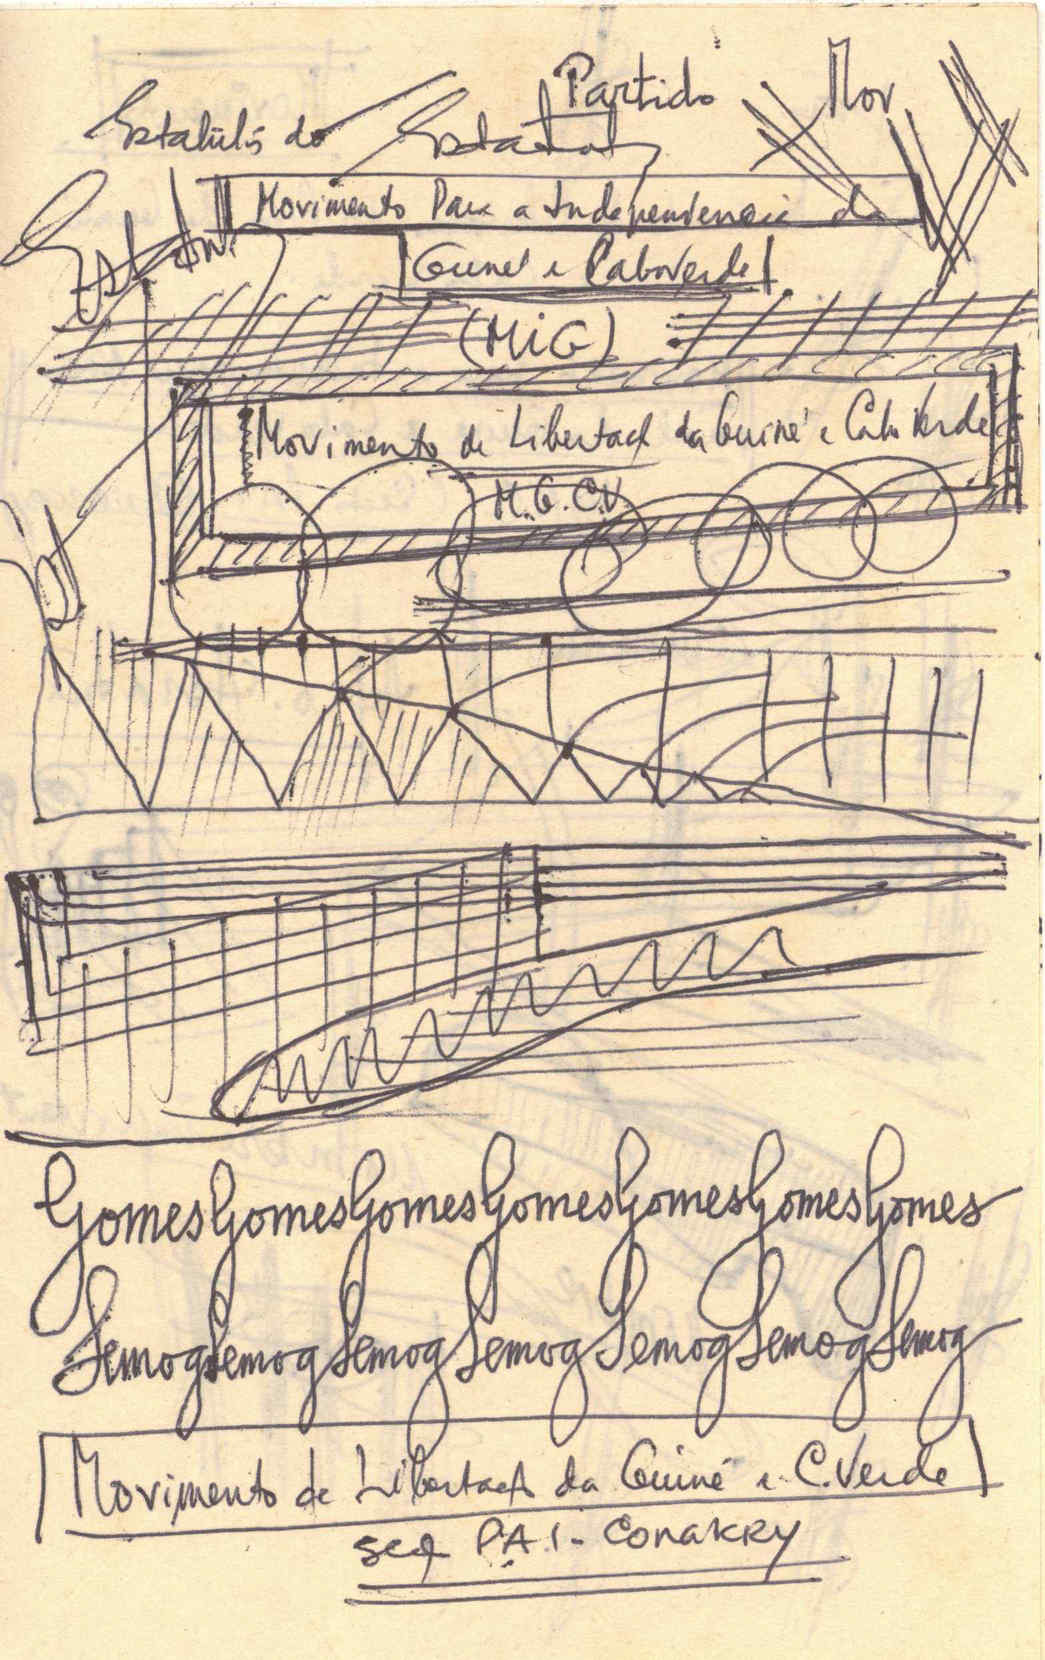 Partido Mov
Estatutos do Estatutos
Estatut
Movimento Para a Independencia da
Guiné e Caboverde
(MiG)
Movimento de Libertaçã da Guiné e Cabo Verde
M.G.C.V.
Est
GomesGomesGomesGomesGomesGomesGomes
SemogSemogSemogSemogSemogSemogSemog
Movimento de Libertaçã da Guiné e C. Verde
PAI - CONAKRY